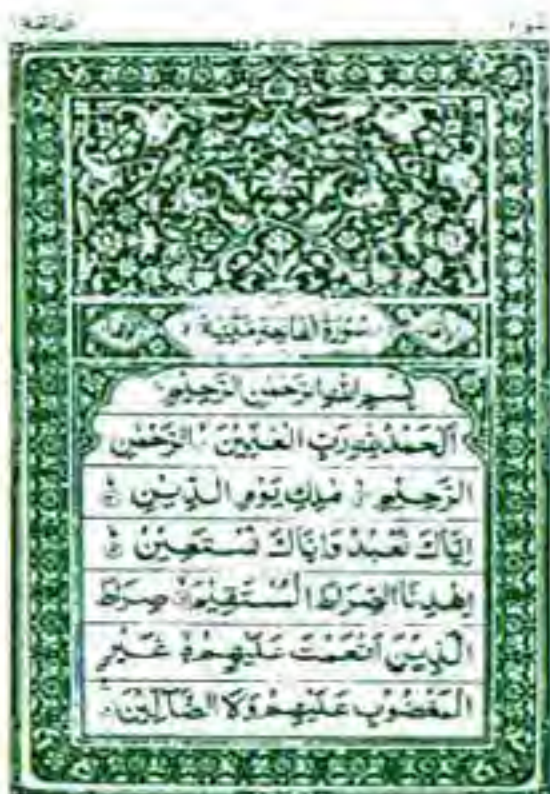 سُورَةُ الْفَاتِحَةِ مَكِّيَّةٌ
بِسْمِ اللهِ الرَّحْمٰنِ الرَّحِيْمِ
اَلْحَمْدُ لِلهِ رَبِّ الْعٰلَمِيْنَ الرَّحْمٰنِ
الرَّحِيْمِ مٰلِكِ يَوْمِ الدِّيْنِ
اِيَّاكَ نَعْبُدُ وَاِيَّاكَ نَسْتَعِيْنُ
اِهْدِنَا الصِّرَاطَ الْمُسْتَقِيْمَ صِرَاطَ
الَّذِيْنَ اَنْعَمْتَ عَلَيْهِمْ غَيْرِ
الْمَغْضُوْبِ عَلَيْهِمْ وَلَا الضَّآلِّيْنَ